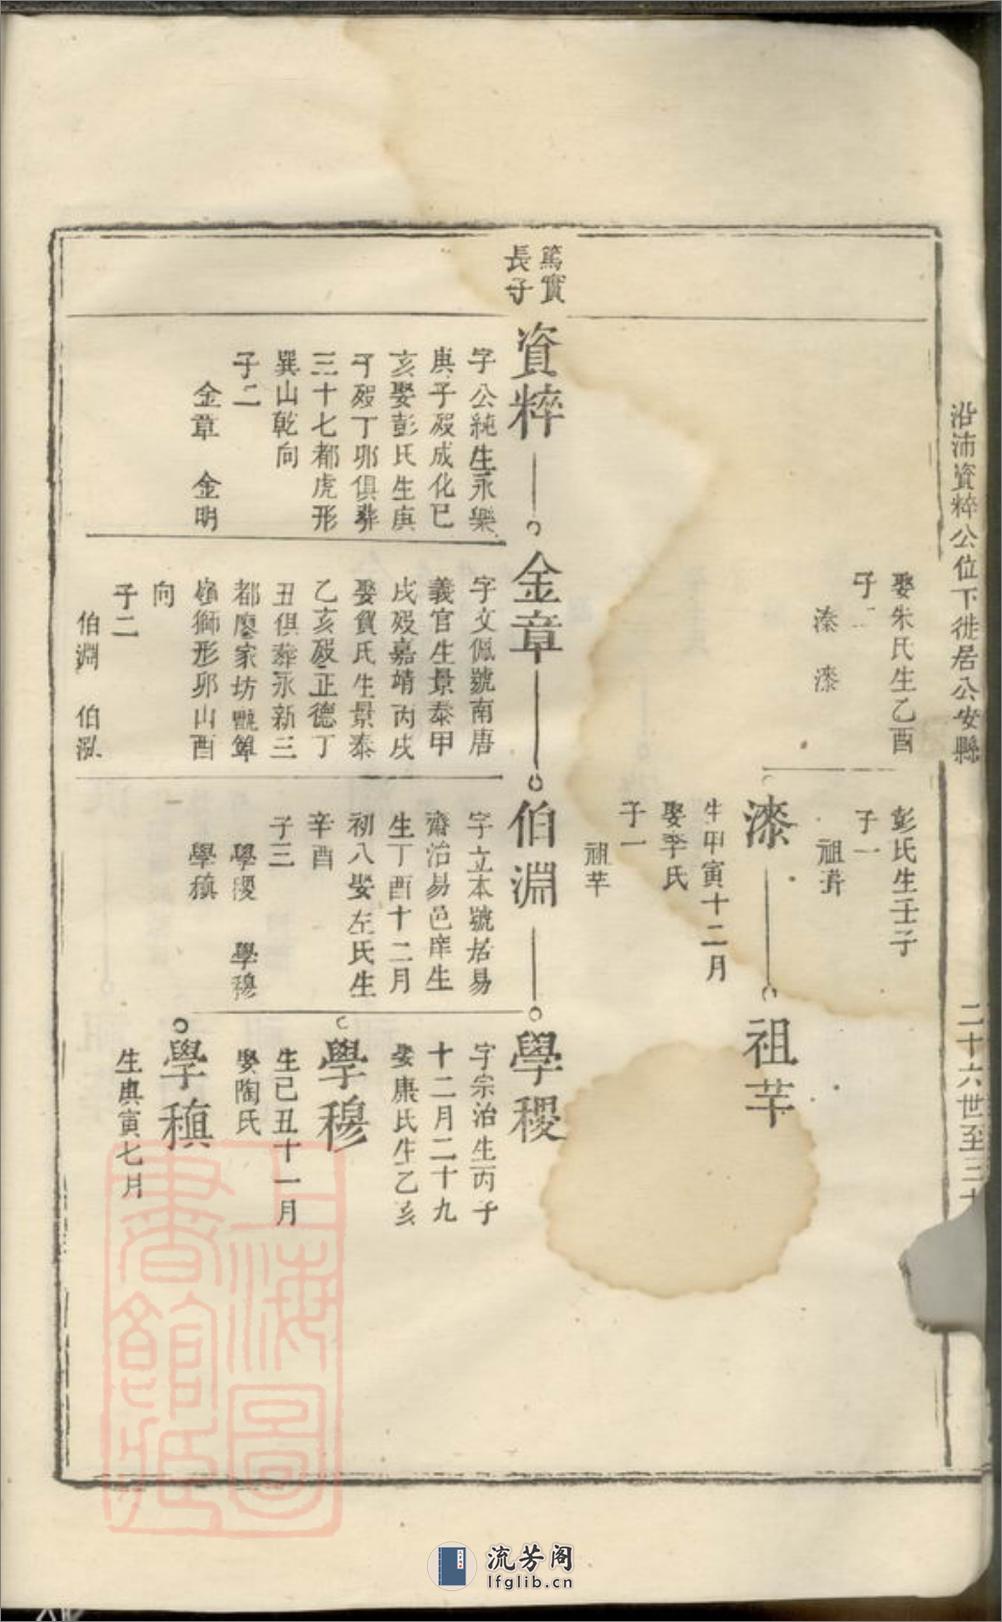 沿沛資粹公位下徙居公安縣
二十六世至三十
娶朱氏生乙酉
子二
溱 漆
彭氏生壬子
子一
漆
生甲寅十二月
娶李氏
子一
祖芉
祖芉
篤實
長子
資粹
字公純生永樂
庚子歿成化己
亥娶彭氏生庚
子歿丁卯俱葬
三十七都虎形
巽山乾向
子二
金章 金明
金章
字文佩號南唐
義官生景泰甲
戌歿嘉靖丙戌
娶賀氏生景泰
乙亥歿正德丁
丑俱葬永新三
都廖家坊
嶺獅形卯山酉
向
子二
伯淵 伯泓
伯淵
字立本號居易
齋治易邑庠生
生丁酉十二月
初八娶左氏生
辛酉
子三
學稷 學穆
學稹
學稷
字宗治生丙子
十二月二十九
娶康氏生乙亥
學穆
生己丑十一月
娶陶氏
學稹
生庚寅七月
上海圖
書館藏
流芳阁
lfglib.cn